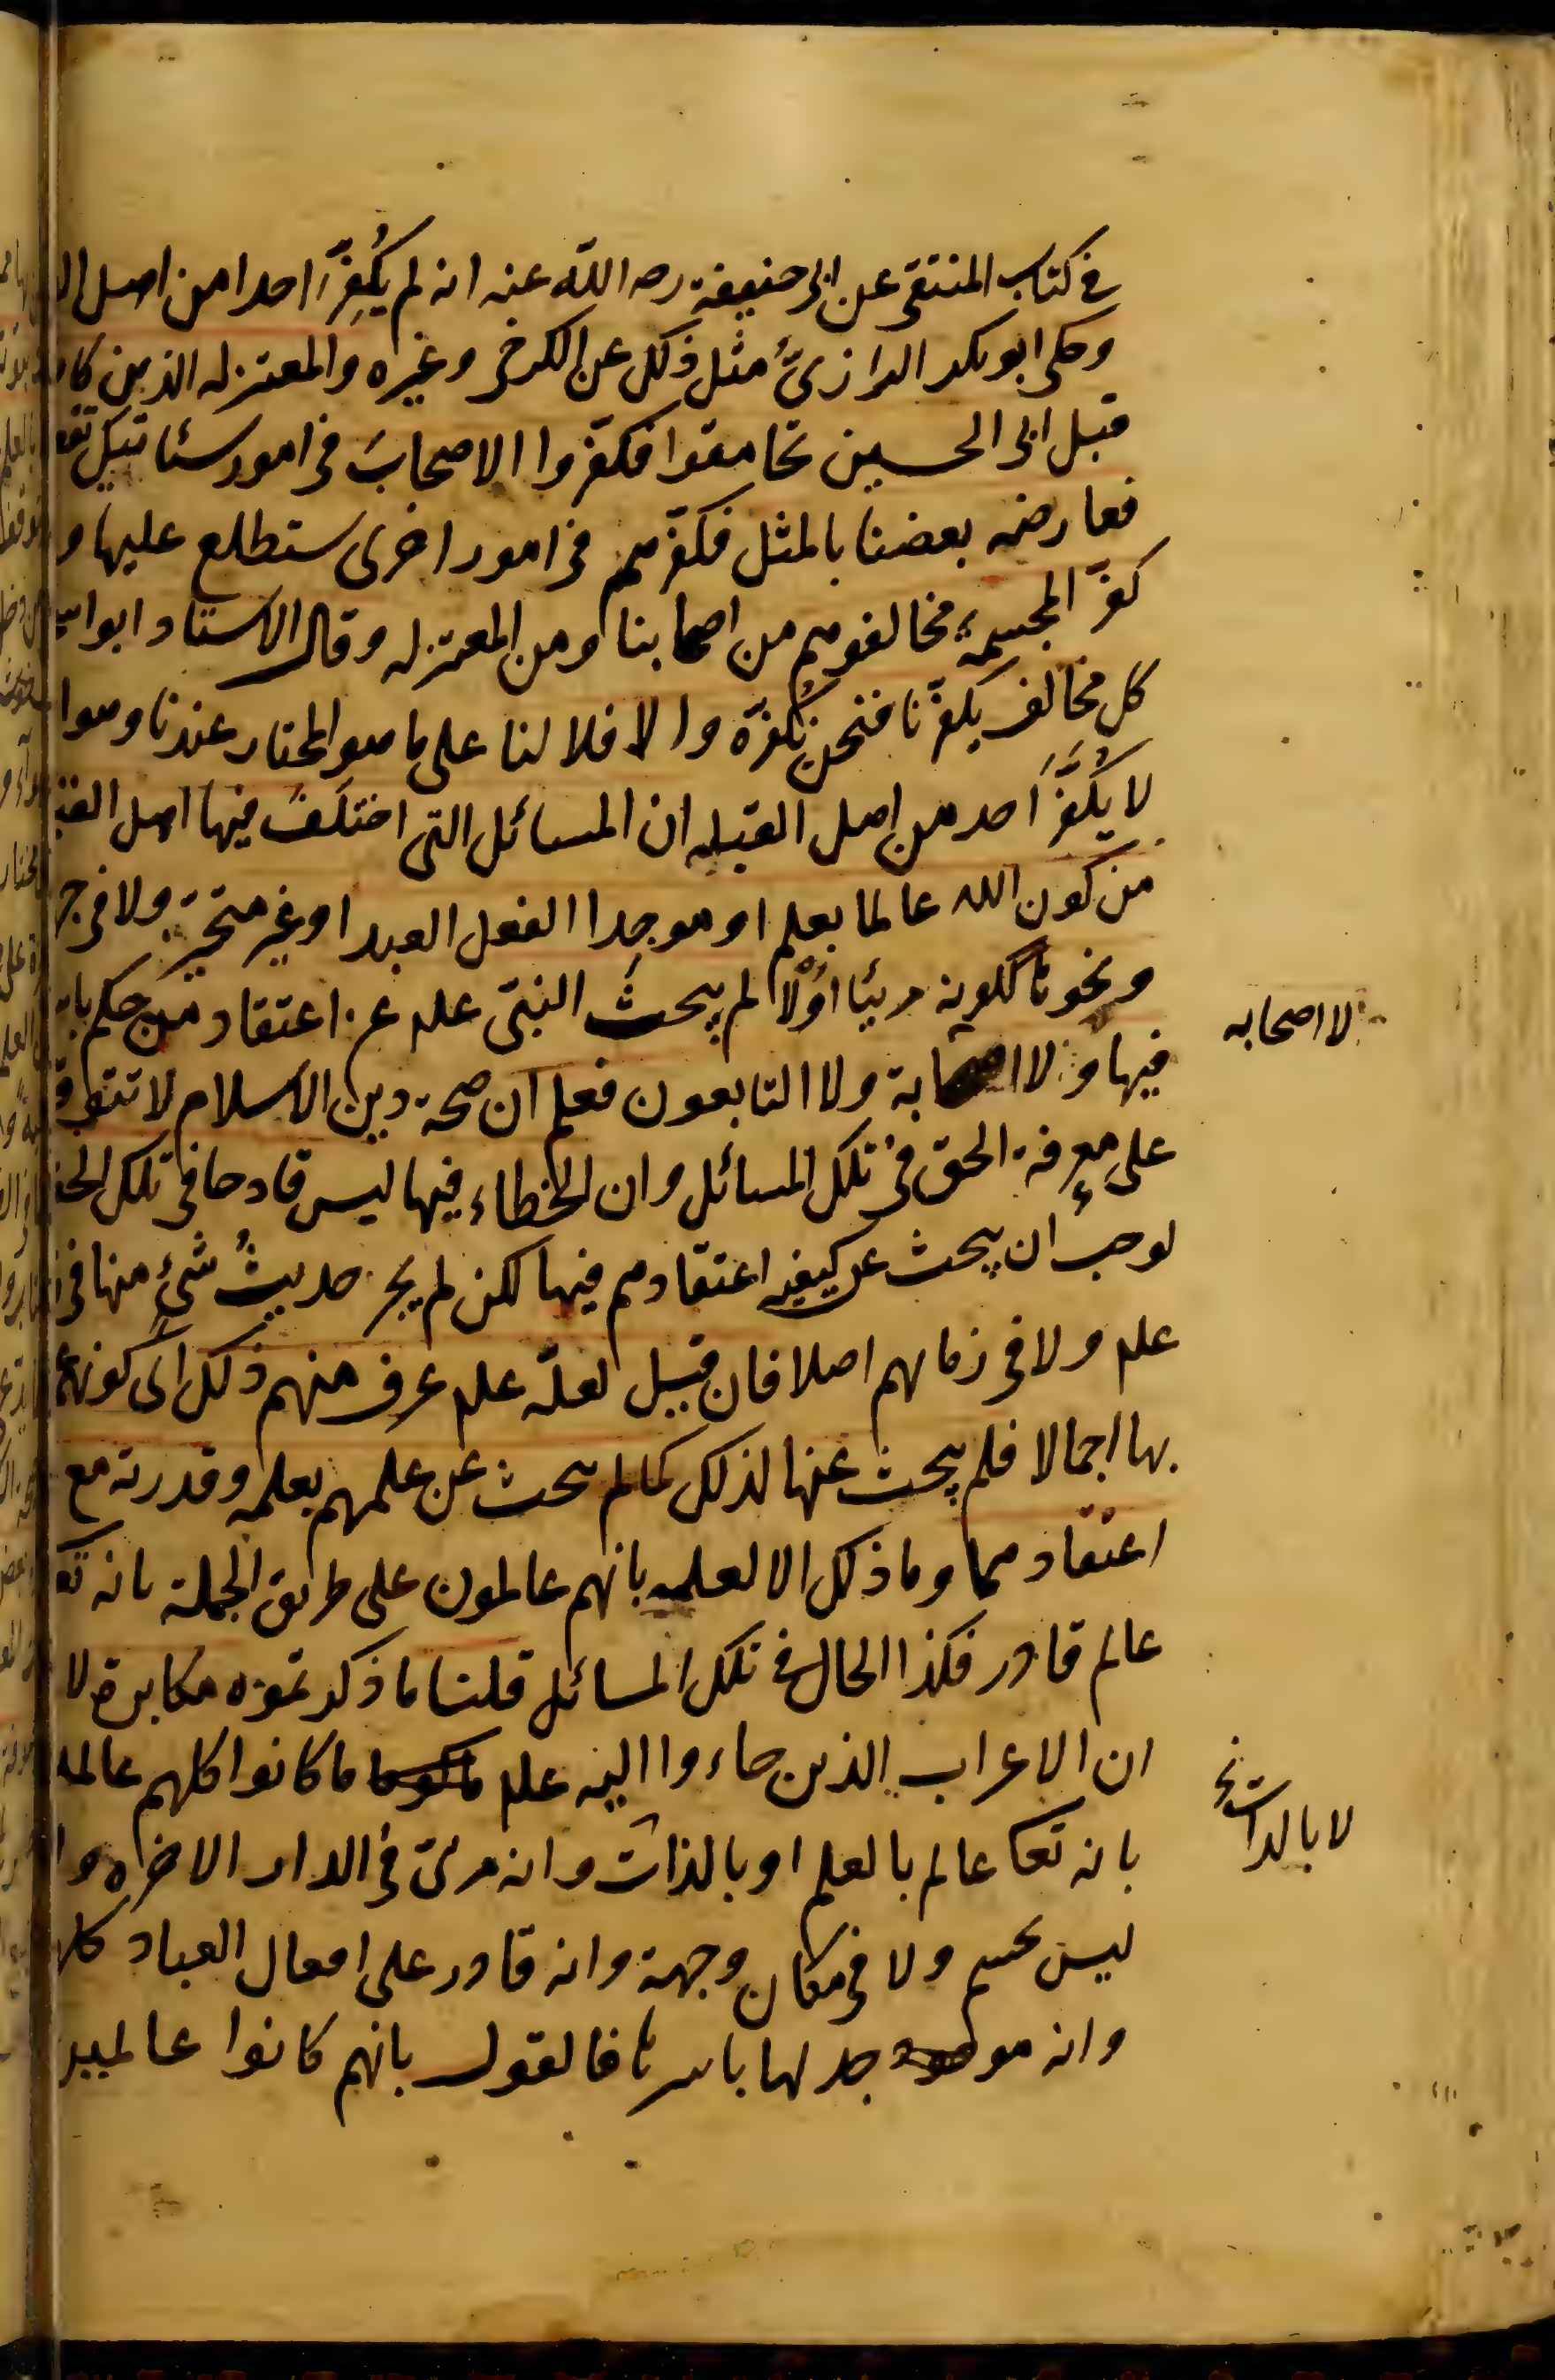 في كتاب المنتقى عن ابى حنيفة رصه الله عنه انه لم يُكفِّر احدا من اهل
وحكى ابو بكر الرازىُّ مثل ذلك عن الكرخى وغيره والمعتزله الذين كا
قبل ابى الحسين تحامقوا فكفّروا الاصحابَ فى امور سئاتيك تفـ
فعارضه بعضنا بالمثل فكفّرهم فى امور اخرى ستطلع عليها و
كفّر المجسمة مخالفوهم من اصحابنا ومن المعتزله وقال الاستاد ابو
كل مخالف يكفّرنا فنحن نُكفّره والا فلا لنا على ما هو المختار عندنا وهوا
لا يُكَفَّرَ احد من اهل القبله ان المسائل التى اختلف فيها اهل القبـ
من كون الله عالما بعلم او موجدا الفعل العبد او غير متحيّز ولا فى جهـ
ونحوها ككونه مرئيا اوْلا لم يبحث النبىّ علم عن اعتقاد من حكم با
فيها ولا اصحابة ولا التابعون فعلم ان صحة دين الاسلام لا تتوقـ
على معرفة الحق فى تلك المسائل وان الخطاء فيها ليس قادحا فى تلك الحـ
لوجب ان يبحث عن كيفيه اعتقادهم فيها لكن لم يجر حديثُ شئٍ منها فى
علم ولا فى زمانهم اصلا فان قيل لعلّه علم عرف منهم ذلك اى كونهم
بها اجمالا فلم يبحث عنها لذلك كما لم يبحث عن علمهم بعلمه وقدرته مع
اعتقادهما وما ذلك الا لعلمه بانهم عالمون على طريق الجملة بانه تع
عالم قادر فكذا الحال فى تلك المسائل قلنا ما ذكرتموه مكابرة لا
ان الاعراب الذين جاءوا اليه علم ما كانوا كلهم عالمـ
بانه تعا عالم بالعلم او بالذات وانه مرئى فى الدار الاخره وا
ليس بجسم ولا فى مكان وجهة وانه قادر على افعال العباد كلـ
وانه موجد لها باسرها فالقول بانهم كانوا عالمين
لا اصحابه
لا بالذات نخ